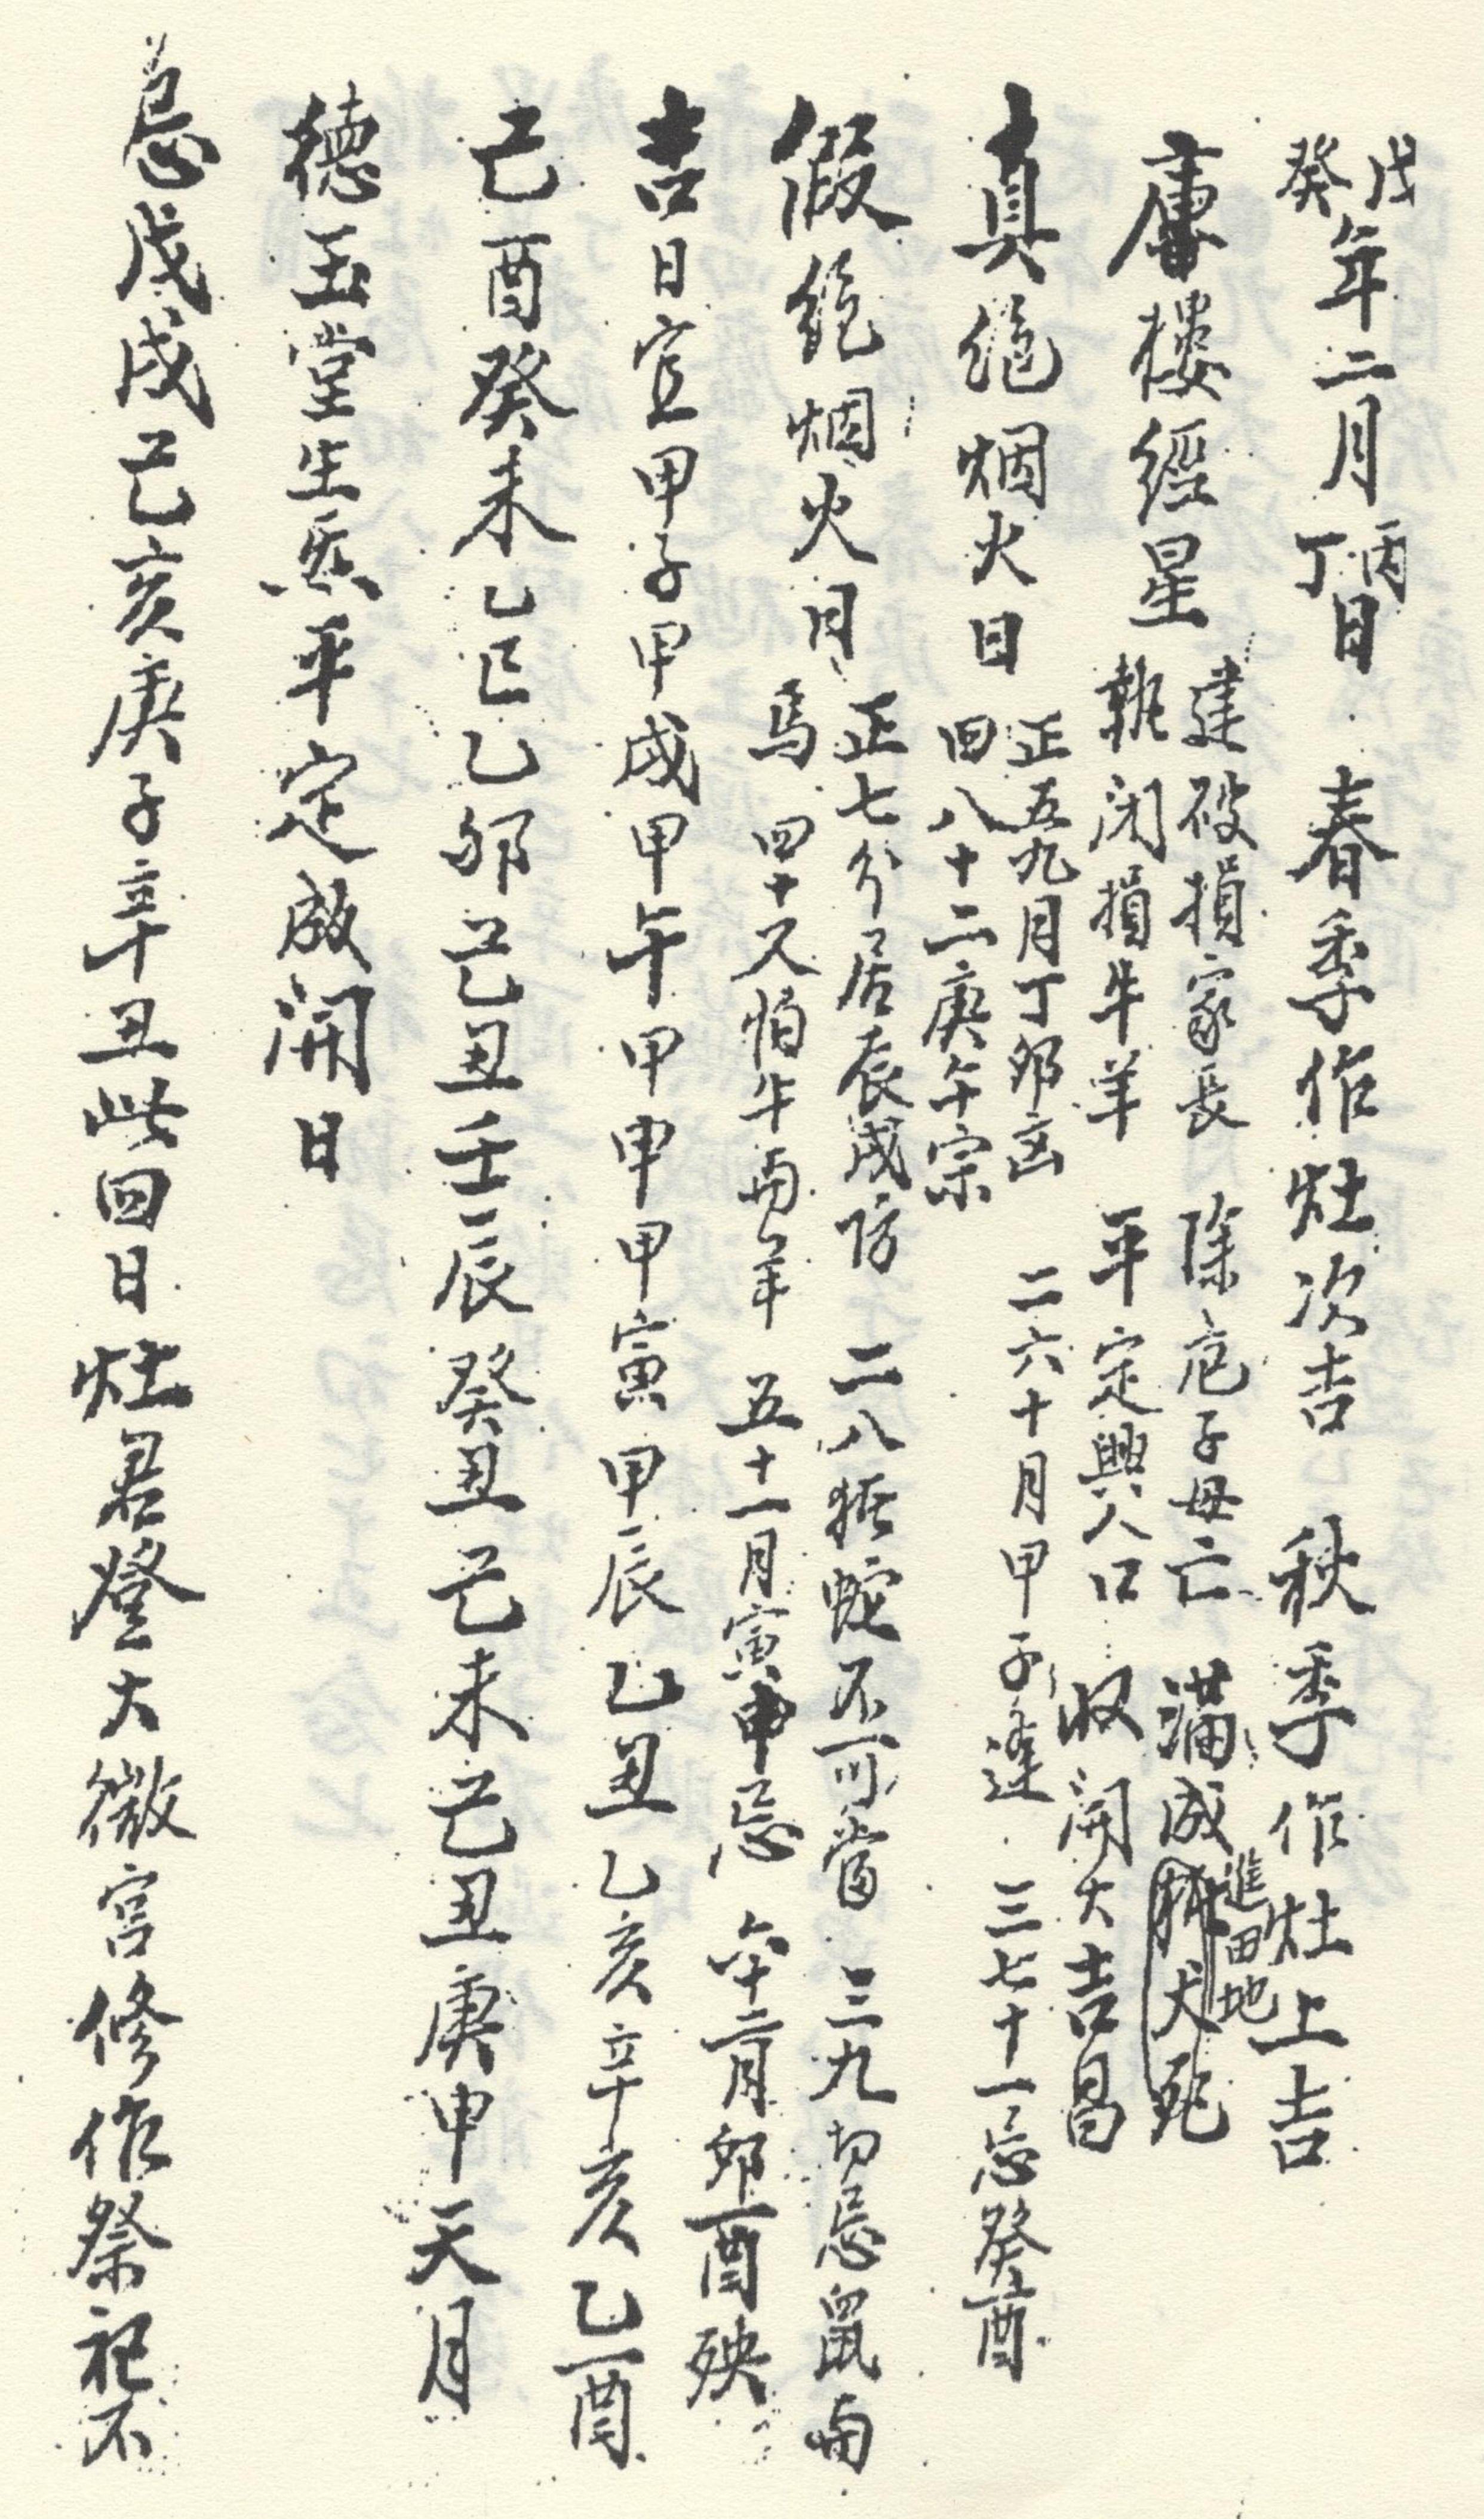 戊癸年二月丙丁日 春季作灶次吉 秋季作灶上吉
樓經星 建破損家長 除危子母亡 滿成進田地 犬死
執闭損牛羊 平定興人口 收開大吉昌
真绝烟火日 正五九月丁卯凶 二六十月甲子逢 三七十一忌癸酉
四八十二庚午宗
假绝烟火月 正七分居辰戌防 二八猪蛇不可當 三九切忌鼠與
馬 四十又怕牛與羊 五十一月寅申忌 六十二月卯酉殃
吉日宜甲子甲戌甲午甲申甲寅甲辰乙丑乙亥辛亥乙酉
己酉癸未乙巳乙卯己丑壬辰癸丑己未己丑庚申天月
德玉堂生炁平定成開日
忌戊戌己亥庚子辛丑此四日灶君登大微宫修作祭祀不